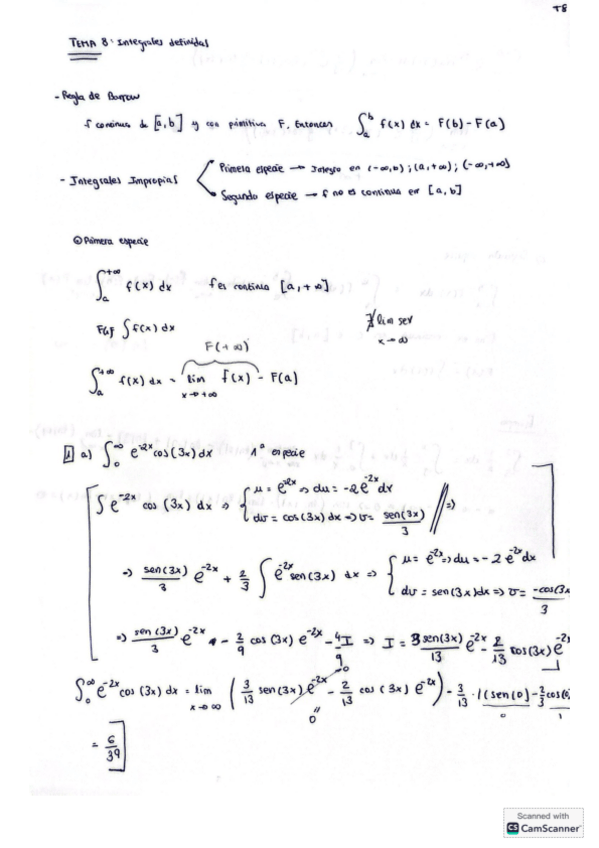 T8
TEMA 8: Integrales definidas
- Regla de Barrow
f continua de [a,b] y con primitiva F. Entonces ∫_a^b f(x) dx = F(b) - F(a)
- Integrales Impropias
Primera especie → Integro en (-∞,b) ; (a,+∞) ; (-∞,+∞)
Segundo especie → f no es continua en [a,b]
Primera especie
∫_a^{+∞} f(x) dx f es continua [a,+∞]
∫ f(x) dx
∄ lim sen
x→∞
F(+∞)
∫_a^{+∞} f(x) dx = lim_{x→+∞} f(x) - F(a)
1 a) ∫_0^∞ e^{-2x} cos(3x) dx 1ª especie
∫ e^{-2x} cos (3x) dx ⇒ { u = e^{-2x} ⇒ du = -2e^{-2x} dx
dv = cos(3x) dx ⇒ v = sen(3x)/3 // ⇒
⇒ sen(3x)/3 e^{-2x} + 2/3 ∫ e^{-2x} sen(3x) dx ⇒ { u = e^{-2x} ⇒ du = -2 e^{-2x} dx
dv = sen(3x)dx ⇒ v = -cos(3x
3
⇒ sen(3x)/3 e^{-2x} - 2/9 cos (3x) e^{-2x} - 4/9 I ⇒ I = 3 sen(3x)/13 e^{-2x} - 2/13 cos(3x) e^{-2
∫_0^∞ e^{-2x} cos (3x) dx = lim_{x→∞} ( 3/13 sen(3x) e^{-2x} - 2/13 cos (3x) e^{-2x} ) - 3/13 · 1 (sen(0) - 2/3 cos(0
0 0 0 1
= 6/39
Scanned with
CS CamScanner